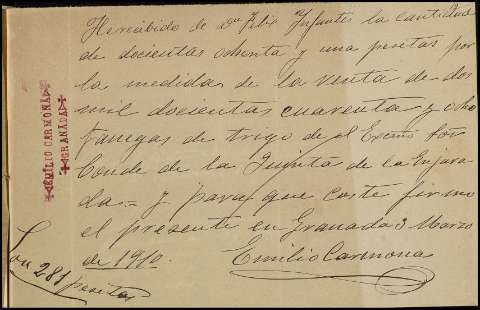 He recibido de Dn Felix Infantes la cantidad
de docientas ochenta y una pesetas por
la medida de la venta de dos
mil docientas cuarenta y ocho
fanegas de trigo de el Excmo Sor
Conde de la Quinta de la Enjara
da = y para que coste firmo
el presente en Granada 3 Marzo
de 1910.
Emilio Carmona
Son 281 pesetas
EMILIO CARMONA
GRANADA